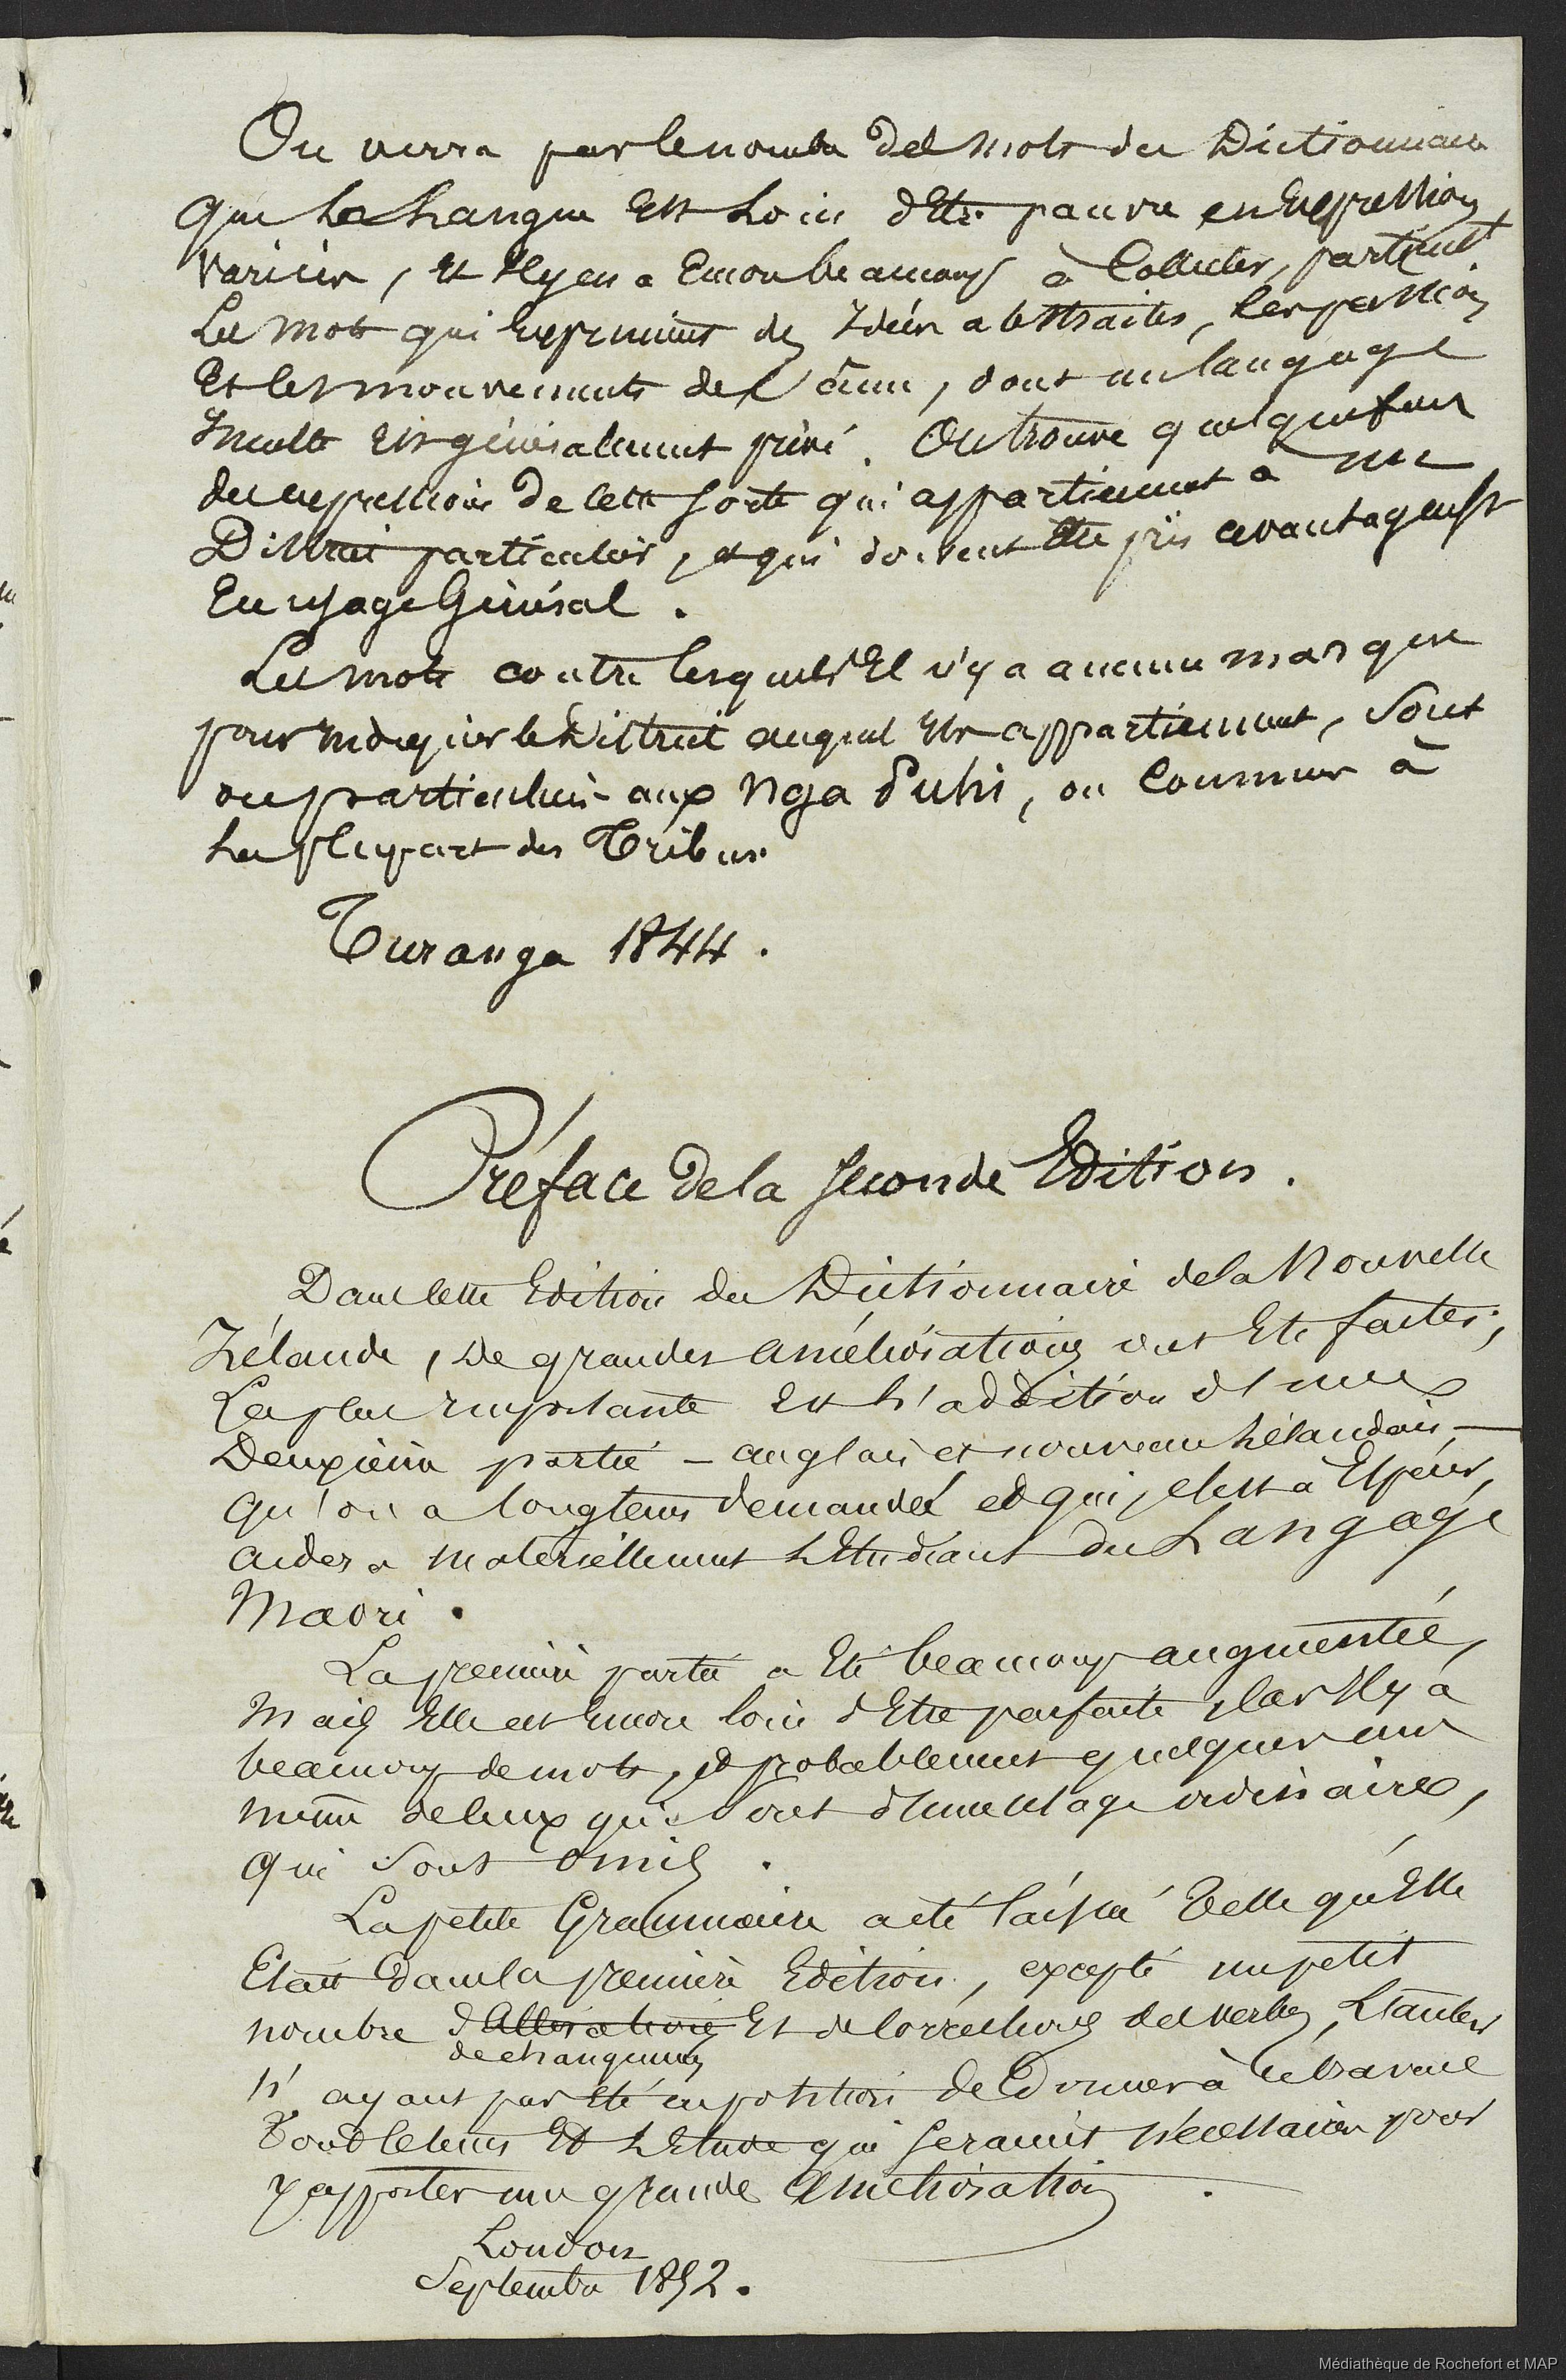 On verra par le nombre des mots du Dictionnaire
que la Langue Est Loin d'Etre pauvre en Expressions
variées, et Il y en a Encore beaucoup à Collecter, particult
Les mots qui Expriment des Idées abstraites, les passions
Et les mouvements de l'âme, dont un langage
Inculte Est généralement privé. On trouve quelquefois
des expressions de cette sorte qui appartiennent à un
District particulier, et qui doivent Etre pris avantageust
En usage Général.
Les mots contre lesquels Il n'y a aucune marque
pour Indiquer le District auquel Ils appartiennent, sont
ou particuliers aux Nga Puhi, ou Communs à
La plupart des Tribus.
Turanga 1844.
Préface de la seconde Edition.
Dans cette Edition du Dictionnaire de la Nouvelle
Zélande, de grandes améliorations ont Eté faites;
La plus importante Est L'addition d'une
Deuxième partie - anglais et nouveau zélandais -
qu'on a longtems demandée et qui, c'est à Espérer,
aidera matériellement L'Etudiant du Langage
Maori.
La première partie a Eté beaucoup augmentée,
Mais Elle est Encore loin d'Etre parfaite, car Il y a
beaucoup de mots, et probablement quelques uns
même de ceux qui sont d'une usage ordinaire,
qui sont omis.
La petite Grammaire a été laissée telle qu'Elle
Etait dans la première Edition, excepté un petit
nombre d'Altérations Et de Corrections des verbes, L'auteur
de changements
n'ayant pas Eté en position de Donner à ce travail
Tout le tems Et L'Etude qui seraient nécessaires pour
y apporter une grande amélioration.
London
Septembre 1852.